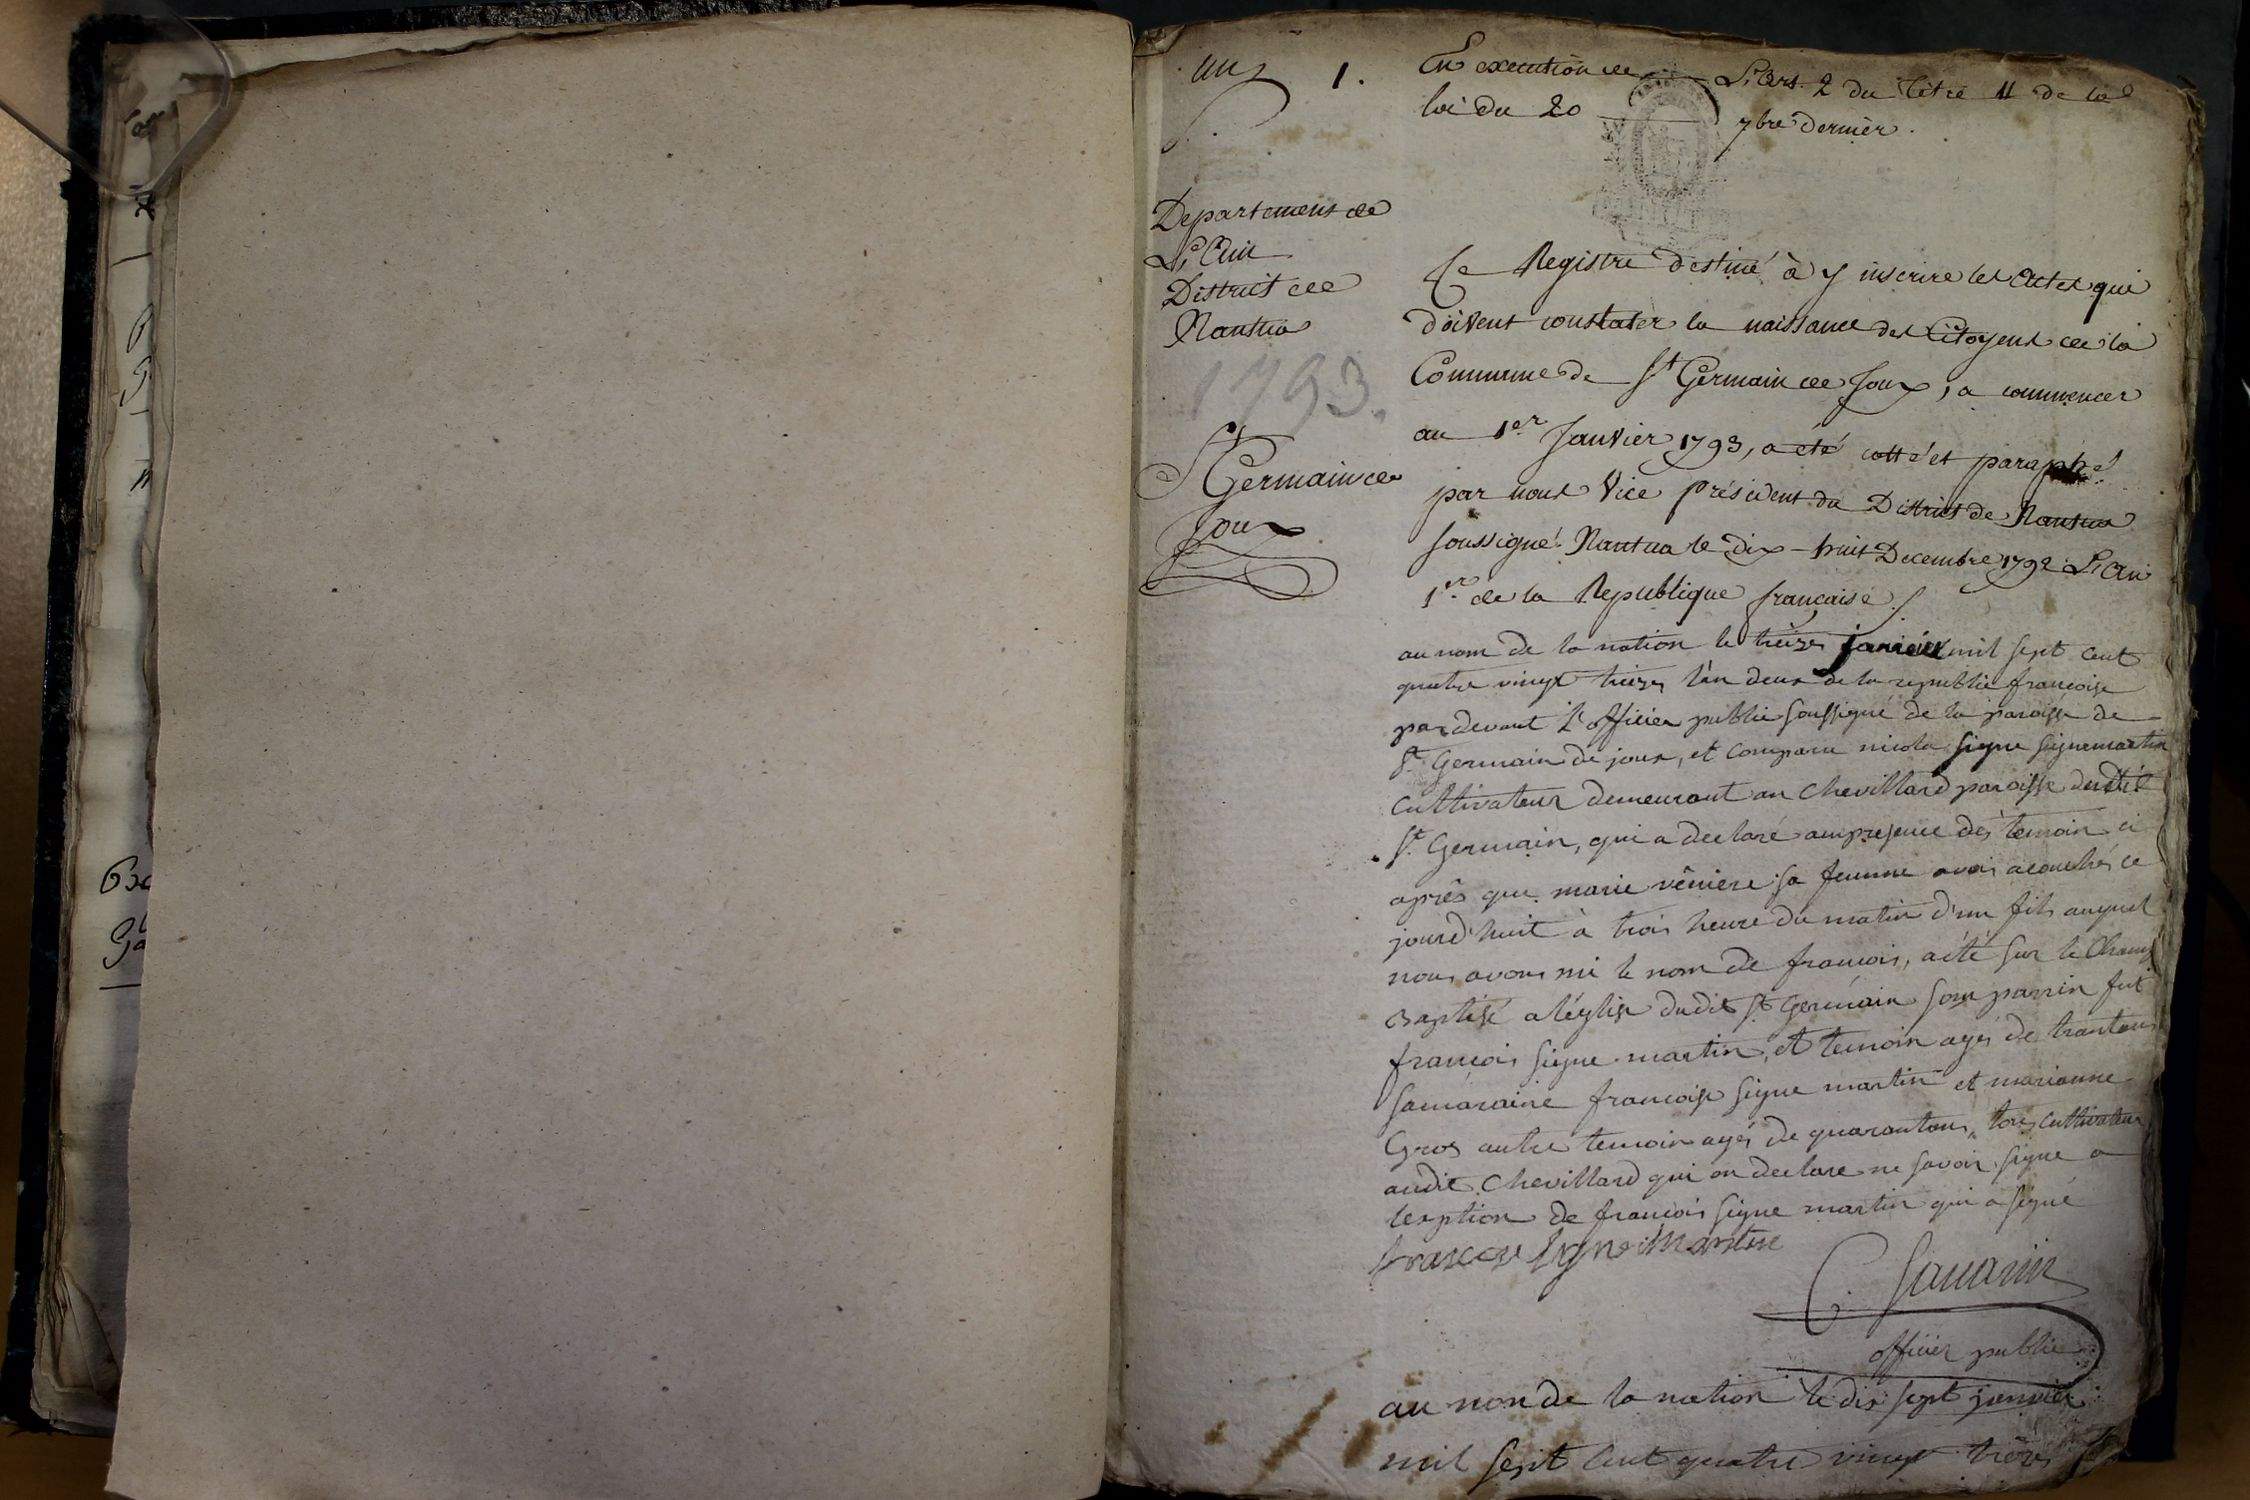 un 1.
En execution de L'Art. 2 du titre 11 de la
loi du 20 7bre dernier.
Departement de
L'Ain
District de
Nantua
1793.
St
Germain de
Joux
Ce Registre destiné à y inscrire les Actes qui
doivent constater la naissance des Citoyens de la
Commune de St Germain de Joux, a commencer
au 1er Janvier 1793, a été cotté et paraphé
par nous Vice président du District de Nantua
soussigné. Nantua le dix-huit Decembre 1792 L'An
1er de la Republique française
au nom de la nation le treize janvier mil sept cent
quatre vingt treize l'an deux de la republic françoise
pardevant l'officier public soussigné de la paroisse de
St Germain de joux, et comparu nicola signe signemartin
cultivateur demeurant au Chevillard paroisse dudit
St Germain, qui a declaré aupresence des temoin ci
après que marie vêniere sa femme avoi acouchés ce
jourd'huit à trois heure du matin d'un fils auquel
nous avons mi le nom de francois, a été sur le Champ
Baptisé a léglise dudit St Germain son parrin fut
francois signe martin, et temoin agés de trantans
samaraine francoise signe martin et marianne
Gros autre temoin agés de quarantans, tous cultivateur
audit Chevillard qui on declare ne savoir signe a
lexption de francois signe martin qui a signé
francois signe Martin
C. Savarin
officier public
au nom de la nation le dix sept janvier
mil sept cent quatre vingt treize